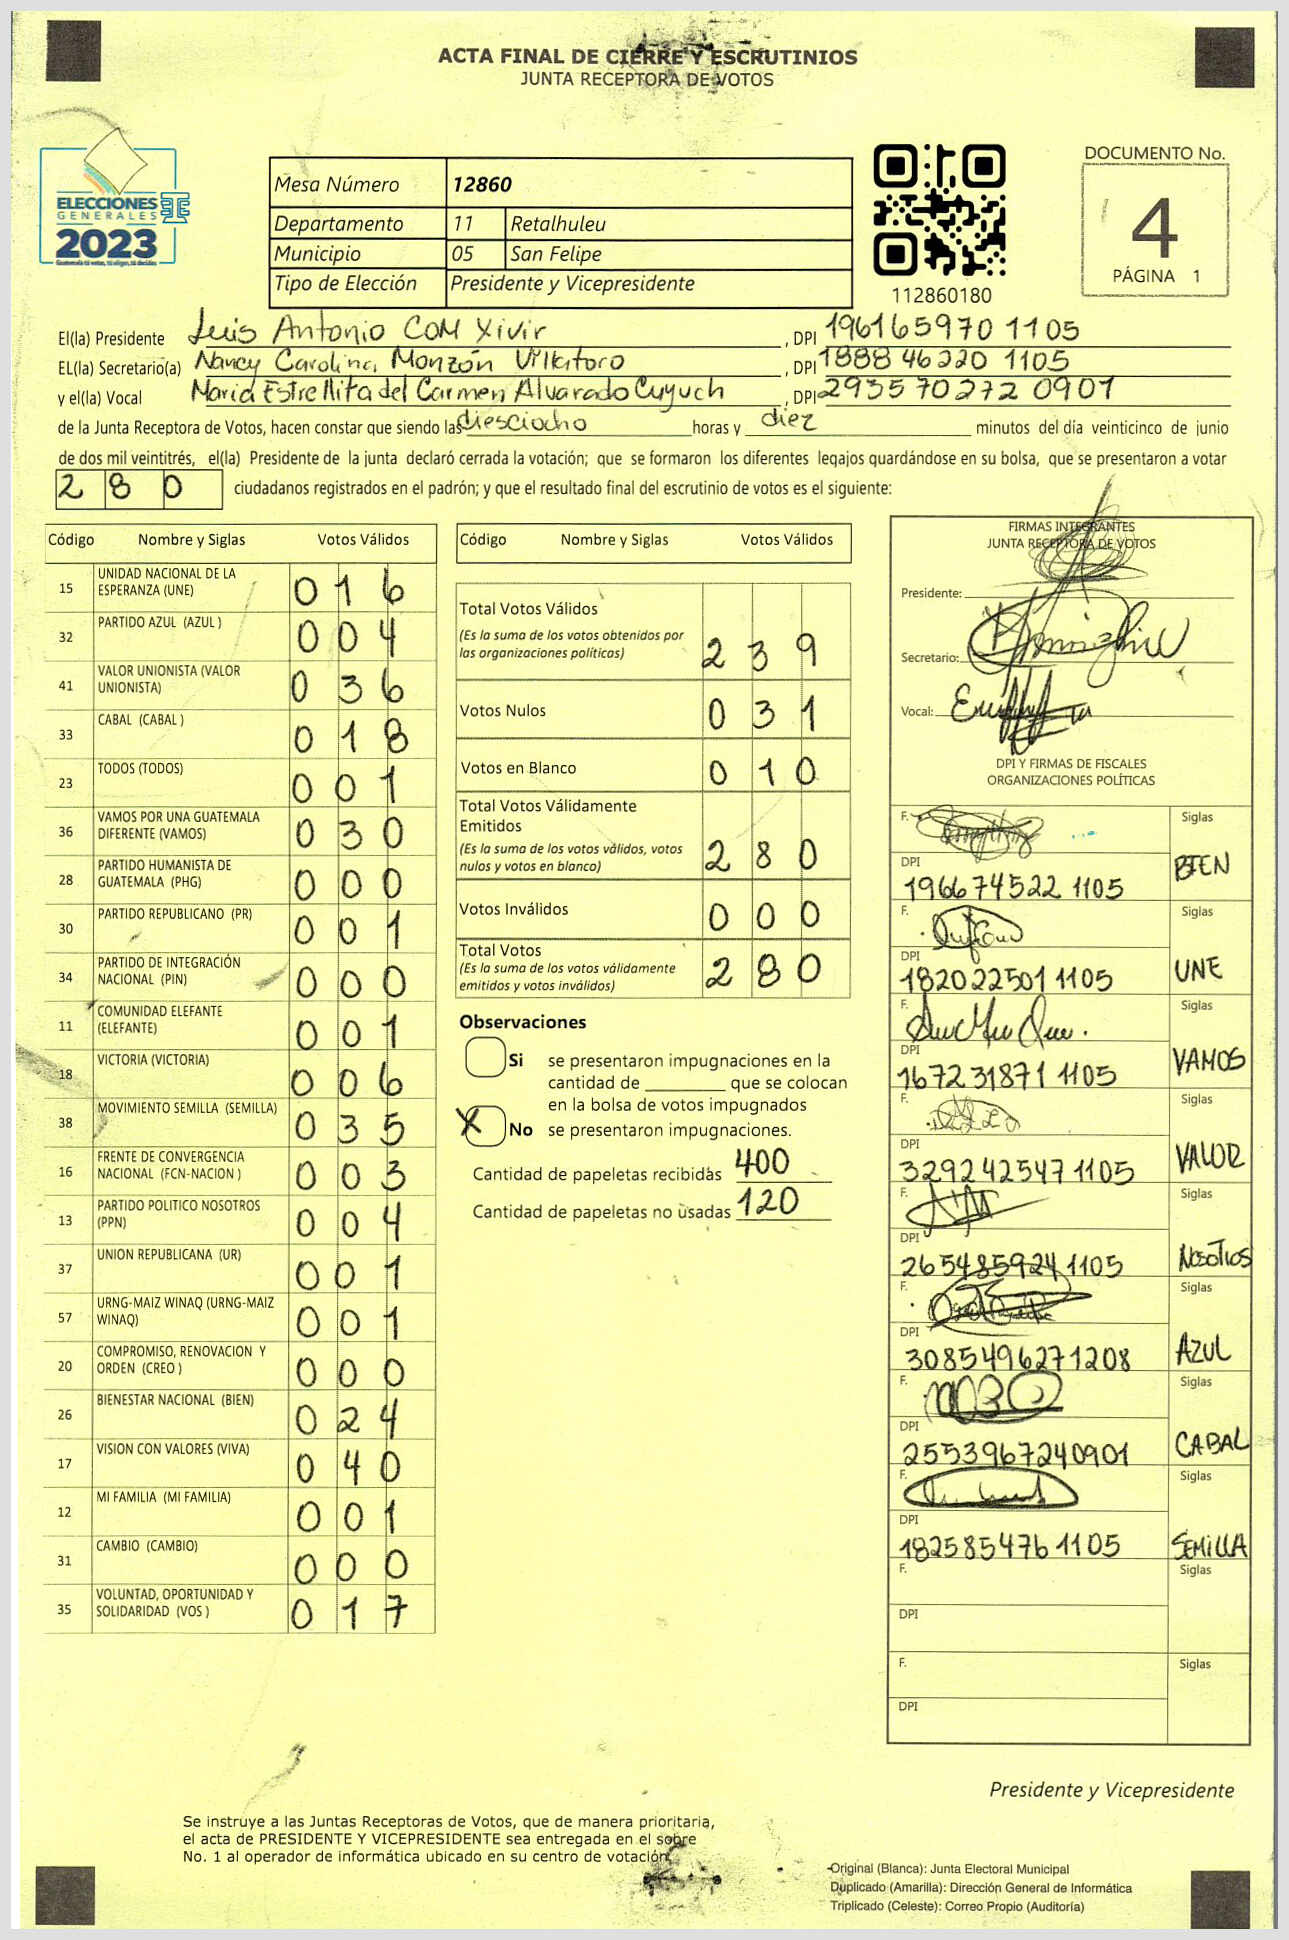 ACTA FINAL DE CIERRE Y ESCRUTINIOS
JUNTA RECEPTORA DE VOTOS
ELECCIONES
GENERALES
2023
Mesa Número 12860
Departamento 11 Retalhuleu
Municipio 05 San Felipe
Tipo de Elección Presidente y Vicepresidente
112860180
DOCUMENTO No.
4
PÁGINA 1
El(la) Presidente Luis Antonio COM Xivir, DPI 196165970 1105
EL(la) Secretario(a) Nancy Carolina Monzón Villatoro, DPI 1888 46220 1105
y el(la) Vocal María Estrellita del Carmen Alvarado Cuyuch, DPI 293570272 0901
de la Junta Receptora de Votos, hacen constar que siendo las diesciocho horas y diez minutos del día veinticinco de junio
de dos mil veintitrés, el(la) Presidente de la junta declaró cerrada la votación; que se formaron los diferentes legajos guardándose en su bolsa, que se presentaron a votar
280 ciudadanos registrados en el padrón; y que el resultado final del escrutinio de votos es el siguiente:
Código Nombre y Siglas Votos Válidos
15 UNIDAD NACIONAL DE LA ESPERANZA (UNE) 016
32 PARTIDO AZUL (AZUL ) 004
41 VALOR UNIONISTA (VALOR UNIONISTA) 036
33 CABAL (CABAL ) 018
23 TODOS (TODOS) 001
36 VAMOS POR UNA GUATEMALA DIFERENTE (VAMOS) 030
28 PARTIDO HUMANISTA DE GUATEMALA (PHG) 000
30 PARTIDO REPUBLICANO (PR) 001
34 PARTIDO DE INTEGRACIÓN NACIONAL (PIN) 000
11 COMUNIDAD ELEFANTE (ELEFANTE) 001
18 VICTORIA (VICTORIA) 006
38 MOVIMIENTO SEMILLA (SEMILLA) 035
16 FRENTE DE CONVERGENCIA NACIONAL (FCN-NACION ) 003
13 PARTIDO POLITICO NOSOTROS (PPN) 004
37 UNION REPUBLICANA (UR) 001
57 URNG-MAIZ WINAQ (URNG-MAIZ WINAQ) 001
20 COMPROMISO, RENOVACION Y ORDEN (CREO ) 000
26 BIENESTAR NACIONAL (BIEN) 024
17 VISION CON VALORES (VIVA) 040
12 MI FAMILIA (MI FAMILIA) 001
31 CAMBIO (CAMBIO) 000
35 VOLUNTAD, OPORTUNIDAD Y SOLIDARIDAD (VOS ) 017
Código Nombre y Siglas Votos Válidos
Total Votos Válidos 239
(Es la suma de los votos obtenidos por
las organizaciones políticas)
Votos Nulos 031
Votos en Blanco 010
Total Votos Válidamente
Emitidos 280
(Es la suma de los votos válidos, votos
nulos y votos en blanco)
Votos Inválidos 000
Total Votos 280
(Es la suma de los votos válidamente
emitidos y votos inválidos)
Observaciones
Si se presentaron impugnaciones en la
cantidad de ________ que se colocan
en la bolsa de votos impugnados
X No se presentaron impugnaciones.
Cantidad de papeletas recibidas 400
Cantidad de papeletas no usadas 120
FIRMAS INTEGRANTES
JUNTA RECEPTORA DE VOTOS
Presidente:
Secretario:
Vocal:
DPI Y FIRMAS DE FISCALES
ORGANIZACIONES POLÍTICAS
F. Siglas
DPI 196674522 1105 BIEN
F. Siglas
DPI 182022501 1105 UNE
F. Siglas
DPI 167231871 1105 VAMOS
F. Siglas
DPI 329242547 1105 VALOR
F. Siglas
DPI 265485924 1105 NOSOTROS
F. Siglas
DPI 3085496271208 AZUL
F. Siglas
DPI 2553967240901 CABAL
F. Siglas
DPI 182585476 1105 SEMILLA
F. Siglas
DPI
F. Siglas
DPI
Presidente y Vicepresidente
Se instruye a las Juntas Receptoras de Votos, que de manera prioritaria,
el acta de PRESIDENTE Y VICEPRESIDENTE sea entregada en el sobre
No. 1 al operador de informática ubicado en su centro de votación.
Original (Blanca): Junta Electoral Municipal
Duplicado (Amarilla): Dirección General de Informática
Triplicado (Celeste): Correo Propio (Auditoría)